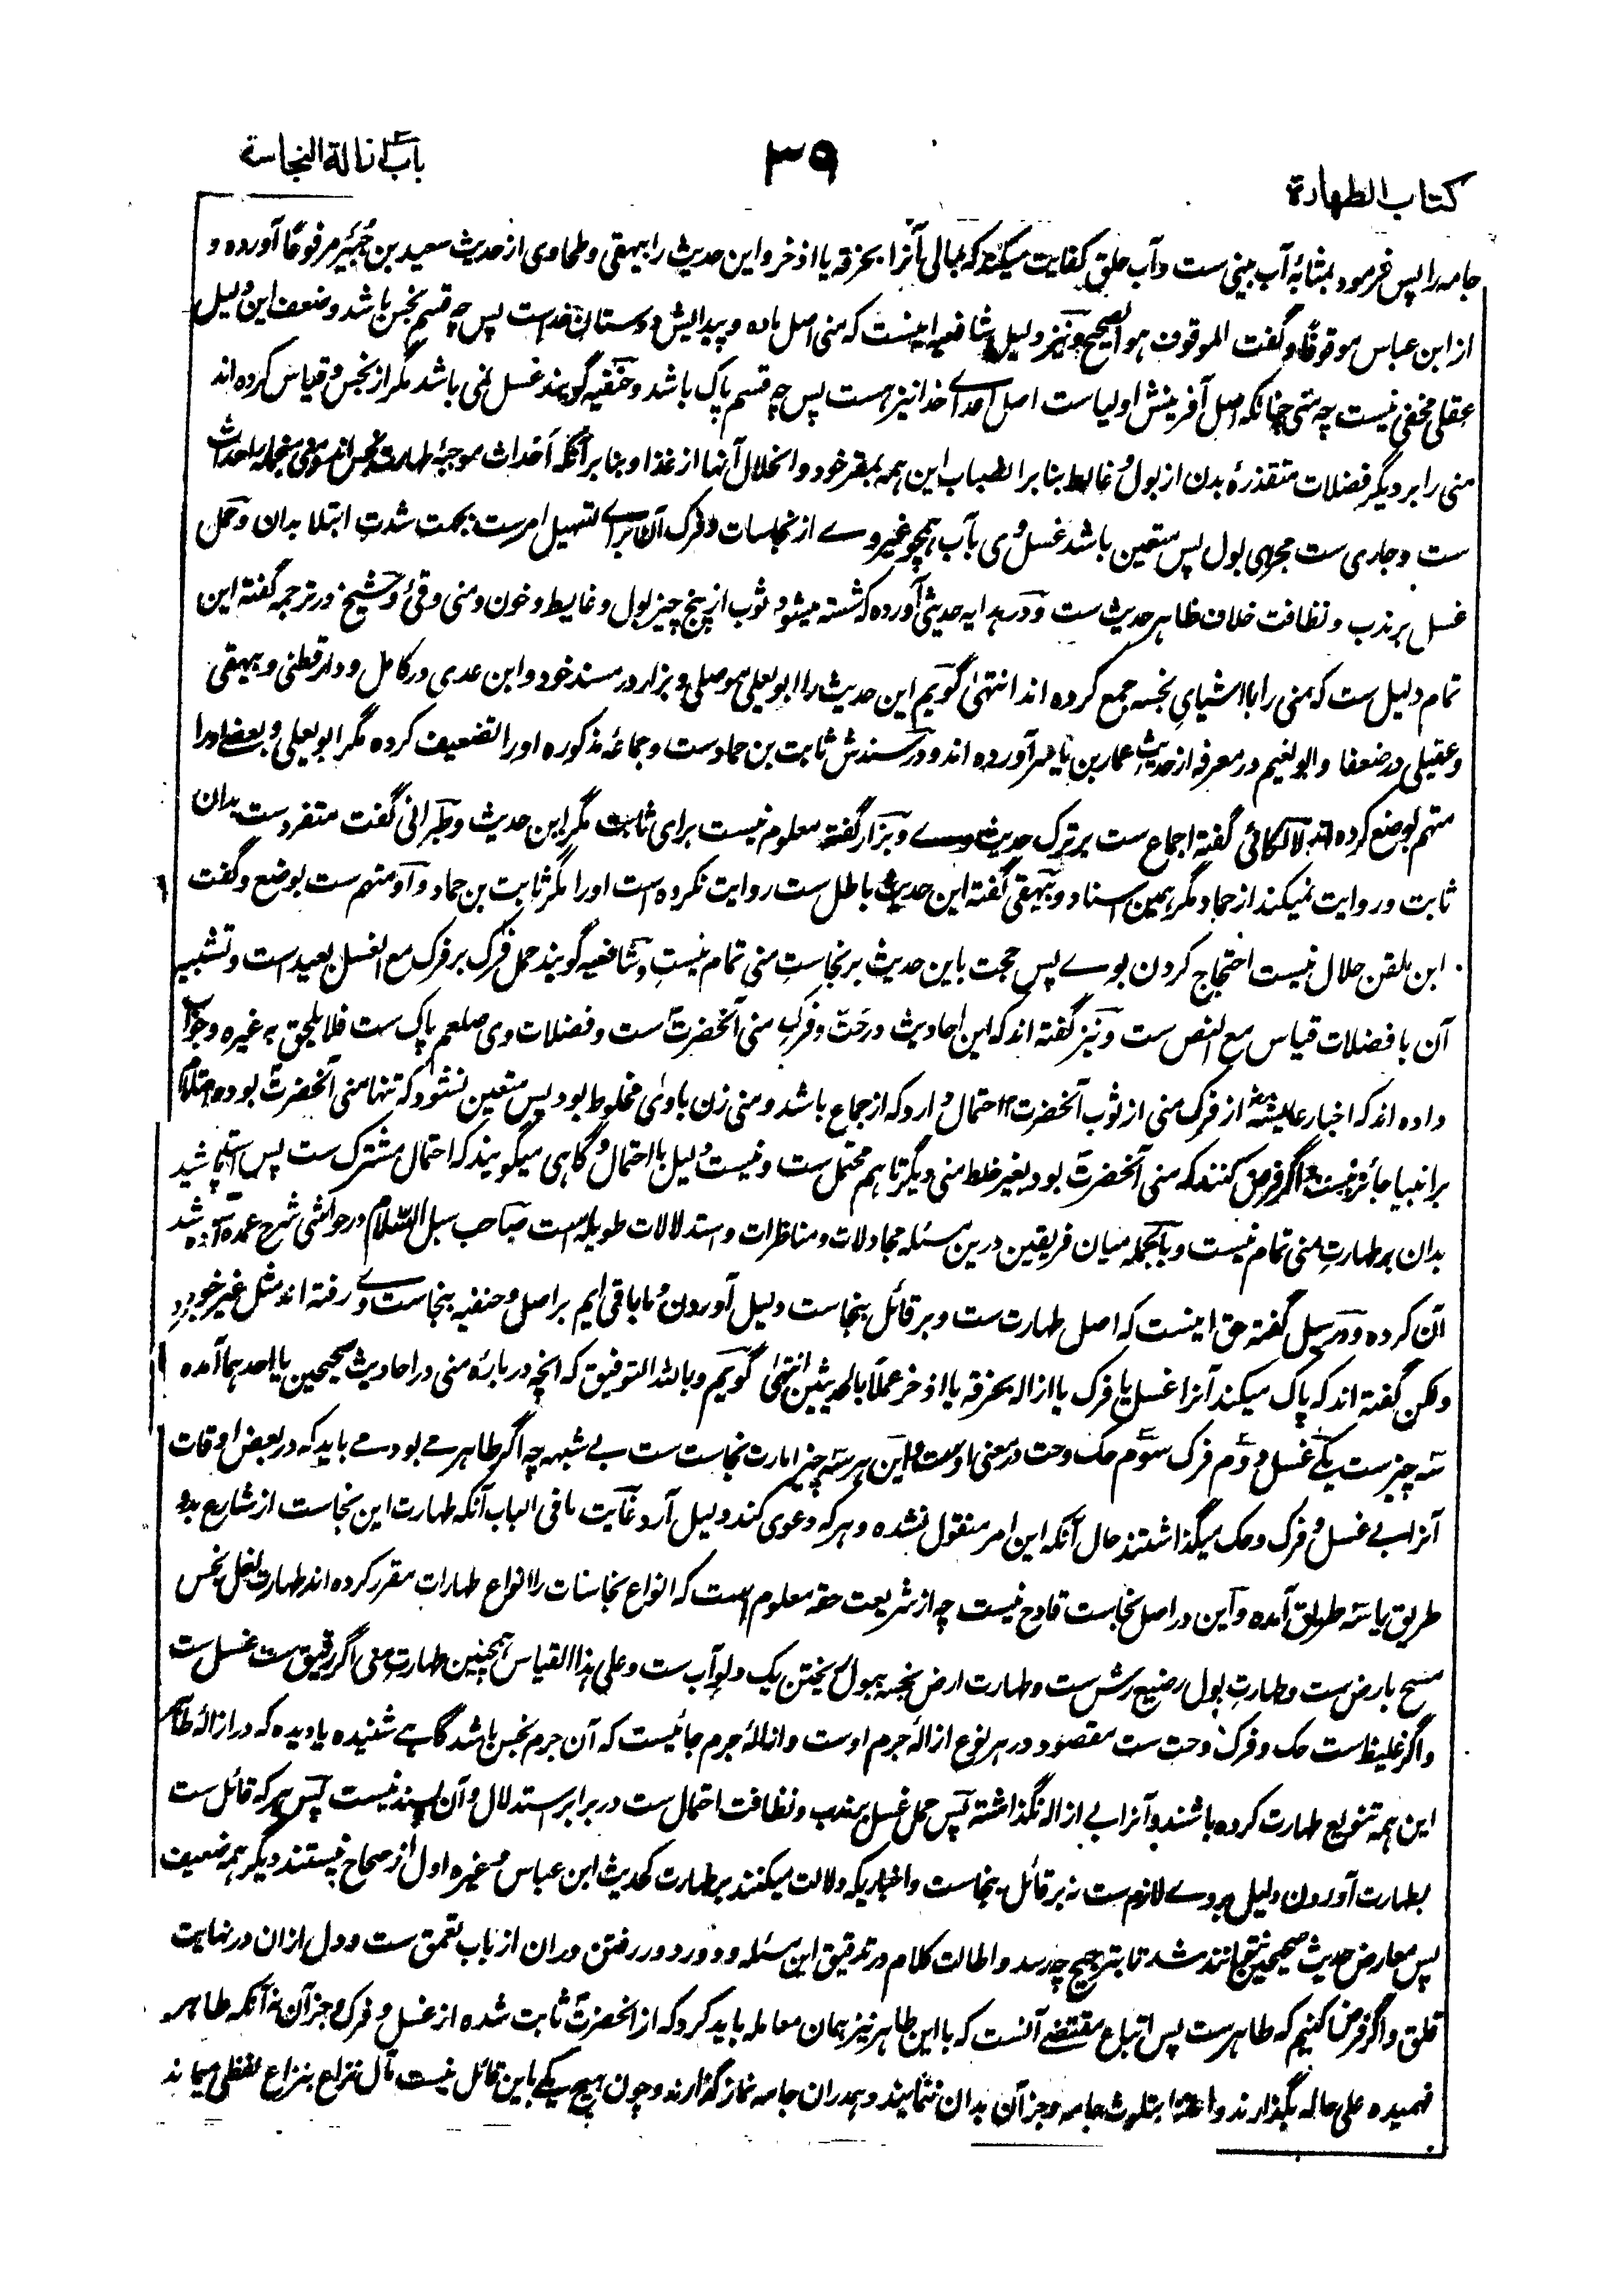 کتاب الطهارة
۳۹
باب ازالة النجاسة
جامه را پس فرمود بمثابهٔ آب بینی ست و آب حلق کفایت میکند که بمالی آنرا بخرقه یا اذخر و این حدیث را بیهقی و طحاوی از حدیث سعید بن جبیر مرفوعًا آورده و
از ابن عباس موقوفًا و گفت الموقوف هو الصحیح و نیز دلیل شافعیه اینست که منی اصل ماده و پیدایش دوستان خداست پس چه قسم نجس باشد و ضعف این دلیل
عقلی مخفی نیست چه منی چنانکه اصل آفرینش اولیاست اصل اعدای خدا نیز هست پس چه قسم پاک باشد و حنفیه گویند غسل نمی باشد مگر از نجس و قیاس کرده اند
منی را بر دیگر فضلات متقذرهٔ بدن از بول و غایط بنا بر انصباب این همه بمقر خود و انحلال آنها از غذا و بنا بر آنکه احداث موجبهٔ طهارت نجس اند و منی منجمله احداث
ست و جاری ست مجرای بول پس متعین باشد غسل وی بآب همچو غیر وے از نجاسات و فرک آن برای تسهیل امرست بجهت شدت ابتلا بدان و حمل
غسل بر ندب و نظافت خلاف ظاهر حدیث ست و در هدایه حدیثی آورده که شسته میشود ثوب از پنج چیز بول و غایط و خون و منی و قئ و شیخ در ترجمه گفته این
تمام دلیل ست که منی را با اشیای نجسه جمع کرده اند انتهیٰ گویم این حدیث را ابو یعلی موصلی و بزار در مسند خود و ابن عدی در کامل و دارقطنی و بیهقی
و عقیلی در ضعفا و ابو نعیم در معرفه از حدیث عمار بن یاسر آورده اند و در سندش ثابت بن حماد ست و جماعهٔ مذکوره او را تضعیف کرده مگر ابو یعلی و بعضے او را
متهم بوضع کرده اند لالکائی گفته اجماع ست بر ترک حدیث وے و بزار گفته معلوم نیست برای ثابت مگر این حدیث و طبرانی گفت متفردست بدان
ثابت و روایت نمیکند از حماد مگر بهمین اسناد و بیهقی گفته این حدیث باطل ست روایت نکرده است او را مگر ثابت بن حماد و او متهم ست بوضع و گفت
ابن ملقن حلال نیست احتجاج کردن بوے پس حجت باین حدیث بر نجاست منی تمام نیست و شافعیه گویند حمل فرک بر فرک مع الغسل بعید است و تشبیه
آن با فضلات قیاس مع النص ست و نیز گفته اند که این احادیث در حت و فرک منی آنحضرت ست و فضلات وی صلعم پاک ست فلا یلحق به غیره و جواب
داده اند که اخبار عایشه از فرک منی از ثوب آنحضرت احتمال دارد که از جماع باشد و منی زن با وی مخلوط بود پس متعین نشود که تنها منی آنحضرت بوده احتلام
بر انبیا جائز نیست و اگر فرض کنند که منی آنحضرت بود بغیر خلط منی دیگر تا هم محتمل ست و نیست دلیل با احتمال و گاهی میگویند که احتمال مشترک ست پس استدلال
بدان بر طهارت منی تمام نیست و بالجمله میان فریقین درین مسئله مجادلات و مناظرات و استدلالات طویله است صاحب سبل السلام در حواشی شرح عمده
آن کرده و در سبل گفته حق اینست که اصل طهارت ست و بر قائل بنجاست دلیل آوردن و ما باقی ایم بر اصل و حنفیه بنجاست وے رفته اند مثل غیر خود
و لکن گفته اند که پاک میکند آنرا غسل یا فرک یا ازاله بخرقه یا اذخر عملًا بالحدیثین انتهیٰ گویم و بالله التوفیق که انچه دربارهٔ منی در احادیث صحیحین یا احدهما آمده
سه چیز ست یکے غسل دوم فرک سوم حک و حت در معنی اوست و این هر سه چیز امارت نجاست ست بے شبهه چه اگر طاهر مے بود مے باید که در بعض اوقات
آنرا بے غسل و فرک و حک میگذاشتند حال آنکه این امر منقول نشده و هر که دعوی کند دلیل آرد غایت ما فی الباب آنکه طهارت این نجاست از شارع بدو
طریق یا سه طریق آمده و این در اصل نجاست قادح نیست چه از شریعت حقه معلوم است که انواع نجاسات را انواع طهارات مقرر کرده اند طهارت نعل نجس
مسح بارض ست و طهارت بول رضیع رشش ست و طهارت ارض نجسه ببول ریختن یک دلو آب ست و علی هذا القیاس همچنین طهارت منی اگر رقیق ست غسل ست
و اگر غلیظ ست حک و فرک و حت ست مقصود در هر نوع ازالهٔ جرم اوست و ازالهٔ جرم جائیست که آن جرم نجس باشد گاہے شنیده یا دیده که در ازالهٔ طاهر
این همه تنویع طهارت کرده باشند و آنرا بے ازاله نگذاشته پس حمل غسل بر ندب و نظافت احتمال ست در برابر استدلال و آن پسند نیست پس هر که قائل ست
بطهارت آوردن دلیل بروے لازم ست نه بر قائل بنجاست و اخباریکه دلالت میکنند بر طهارت کحدیث ابن عباس و غیره اول از صحاح نیستند دیگر همه ضعیف
پس معارض حدیث صحیحین نتوانند شد تا بترجیح چه رسد و اطالت کلام در تدقیق این مسئله و دور دور رفتن دران از باب تعمق ست و دل ازان در نهایت
قلق و اگر فرض کنیم که طاهرست پس اتباع مقتضے آنست که با این طاهر نیز همان معامله باید کرد که از آنحضرت ثابت شده از غسل و فرک و جز آن نه آنکه طاهر
فهمیده علی حاله بگذارند و اعتنا بتلوث جامه و جز آن بدان ننمایند و همدران جامه نماز گذارند و چون هیچ یکے باین قائل نیست مآل نزاع بنزاع لفظی میماند